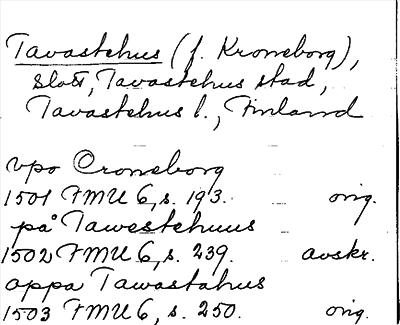 Tavastehus (f. Kroneborg),
slott, Tavastehus stad,
Tavastehus l., Finland
vpo Croneborg
1501 FMU 6, s. 193. orig.
på Tawestehuus
1502 FMU 6, s. 239. avskr.
oppa Tawastahus
1503 FMU 6, s. 250. orig.